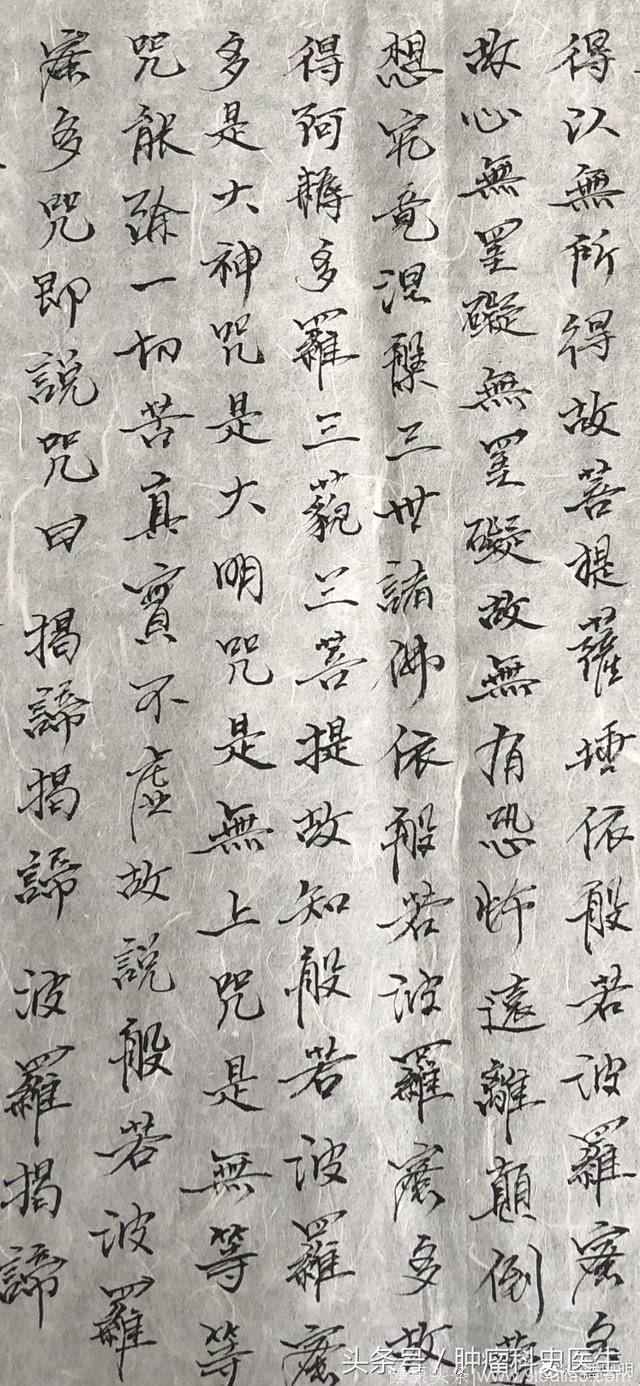 得以無所得故菩提薩埵依般若波羅蜜多
故心無罣礙無罣礙故無有恐怖遠離顛倒夢
想究竟涅槃三世諸佛依般若波羅蜜多故
得阿耨多羅三藐三菩提故知般若波羅蜜
多是大神咒是大明咒是無上咒是無等等
咒能除一切苦真實不虛故說般若波羅
蜜多咒即說咒曰 揭諦揭諦 波羅揭諦
头条号／肿瘤科史医生